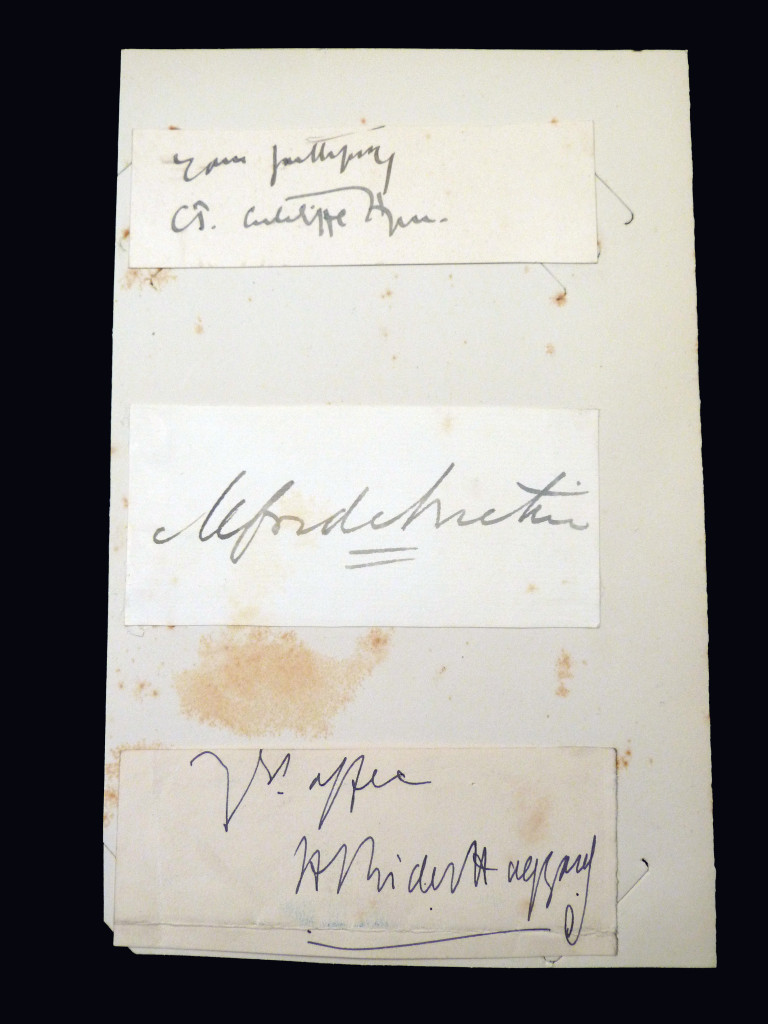 Yours faithfully
C.J. Cutcliffe Hyne.
Alfred Austin
Yrs. affec
H Rider Haggard